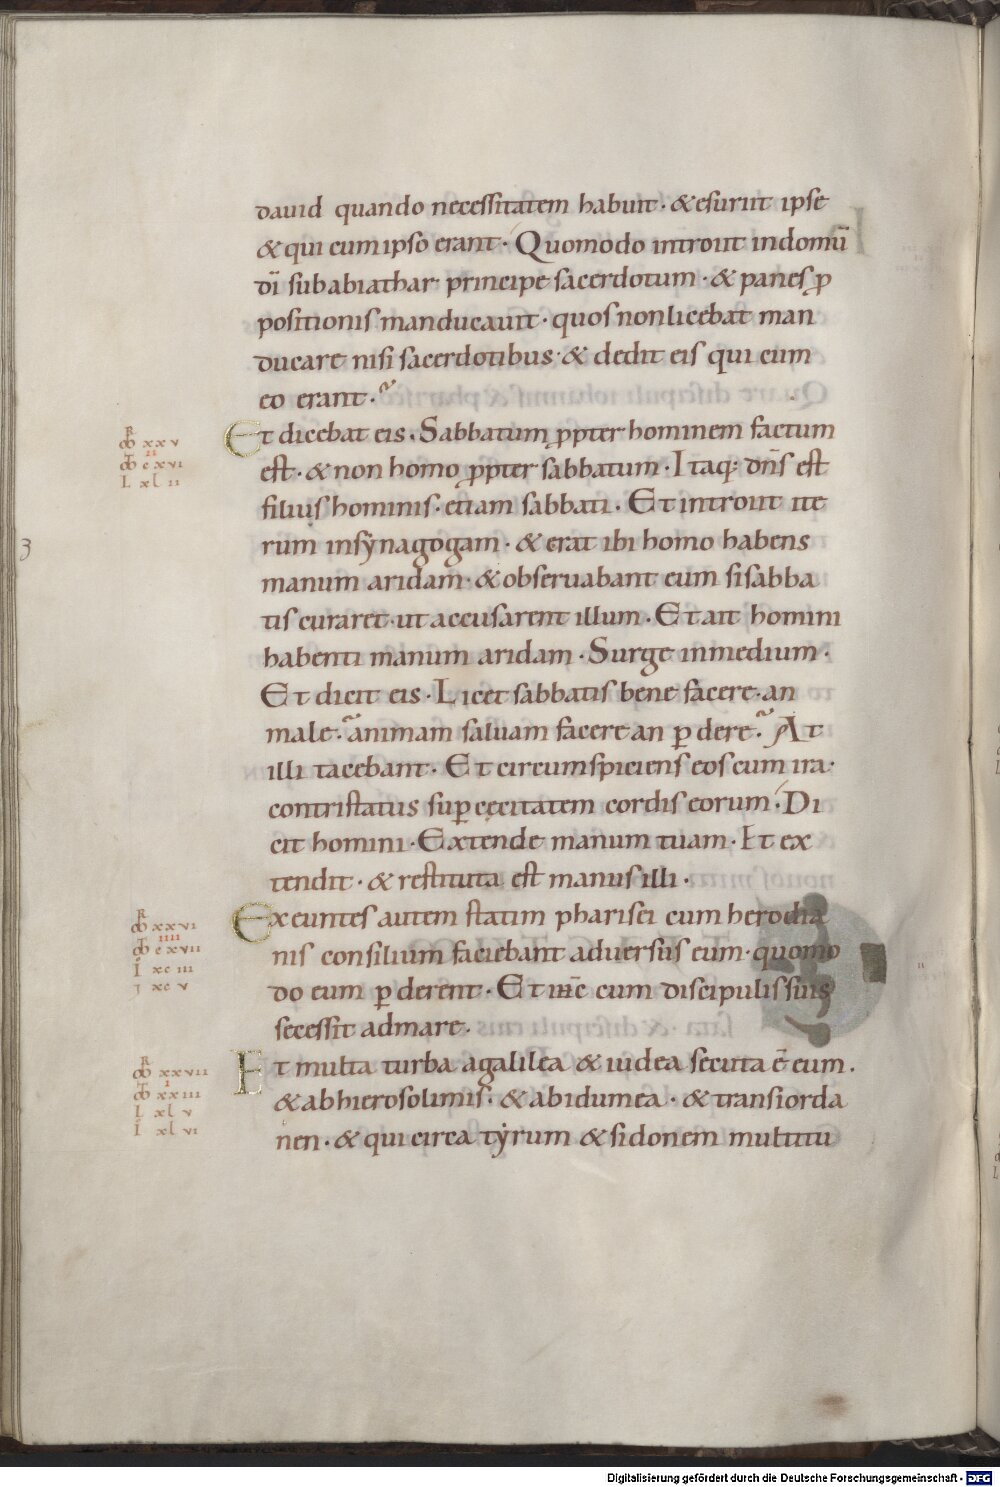 dauid quando necessitatem habuit · & esuriit ipse
& qui cum ipso erant · Quomodo introiit in domū
dī sub abiathar principe sacerdotum · & panes p̱
positionis manducauit · quos non licebat man
ducare nisi sacerdotibus · & dedit eis qui cum
eo erant ·
Et dicebat eis · Sabbatum p̱pter hominem factum
est · & non homo p̱pter sabbatum · Itaq; dn̄s est
filius hominis · etiam sabbati · Et introiit ite
rum in synagogam · & erat ibi homo habens
manum aridam · & obseruabant eum si sabba
tis curaret · ut accusarent illum · Et ait homini
habenti manum aridam · Surge in medium ·
Et dicit eis · Licet sabbatis bene facere · an
male · animam saluam facere an p̱dere · At
illi tacebant · Et circumspiciens eos cum ira ·
contristatus sup̱ cęcitatem cordis eorum · Di
cit homini · Extende manum tuam · Et ex
tendit · & restituta est manus illi ·
Exeuntes autem statim pharisei cum herodia
nis consilium faciebant aduersus eum · quomo
do eum p̱derent · Et ih̄c cum discipulis suis
secessit ad mare ·
Et multa turba a galilea & iudea secuta ē eum ·
& ab hierosolimis · & ab idumea · & trans iorda
nen · & qui circa tyrum & sidonem multitu
R
xxv
II
cxvi
L xl ii
3
R
xxvi
IIII
cxvii
I xc iii
xc v
R
xxvii
I
xxiii
L xl v
I xl vi
Digitalisierung gefördert durch die Deutsche Forschungsgemeinschaft - DFG